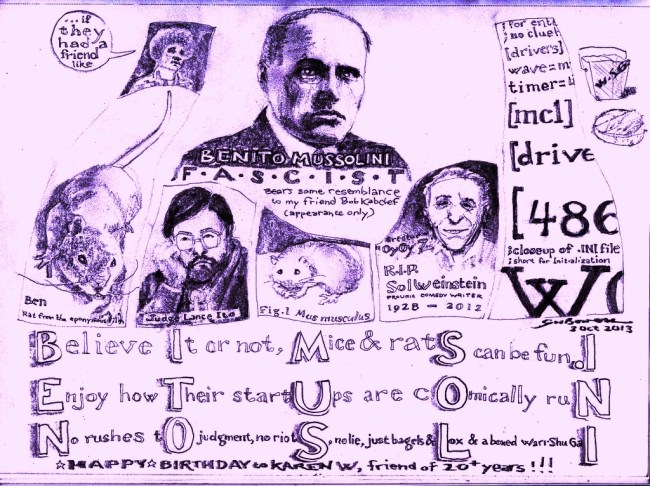 ...if
they
had a
friend
like
BENITO MUSSOLINI
F·A·S·C·I·S·T
Bears some resemblance
to my friend Bob
(appearance only)
[drivers]
wave=m
timer=
[mci]
[drive
[486
;closeup of .INI file
;short for Initialization
WO
3 OCT 2013
Ben
Rat from the eponymous film
Judge Lance Ito
Fig.1 Mus musculus
R.I.P.
Sol Weinstein
COMEDY WRITER
1928 - 2012
Believe It or not, Mice & rats can be fun.I
Enjoy how Their startUps are cOmically ruN
No rushes tO judgment, no riotS, no lie, just bagels & Lox & a boxed Wari-Shu Ga I
☆HAPPY☆BIRTHDAY to KAREN W, friend of 20+ years!!!